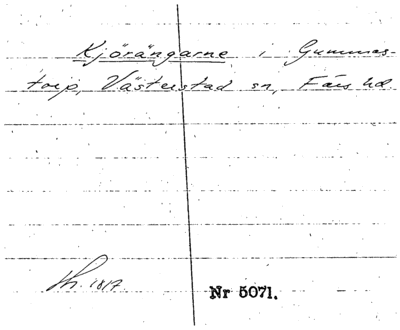 Kjörängarne i Gummas-
torp, Västerstad sn, Färs hd.
1817
Nr 5071.